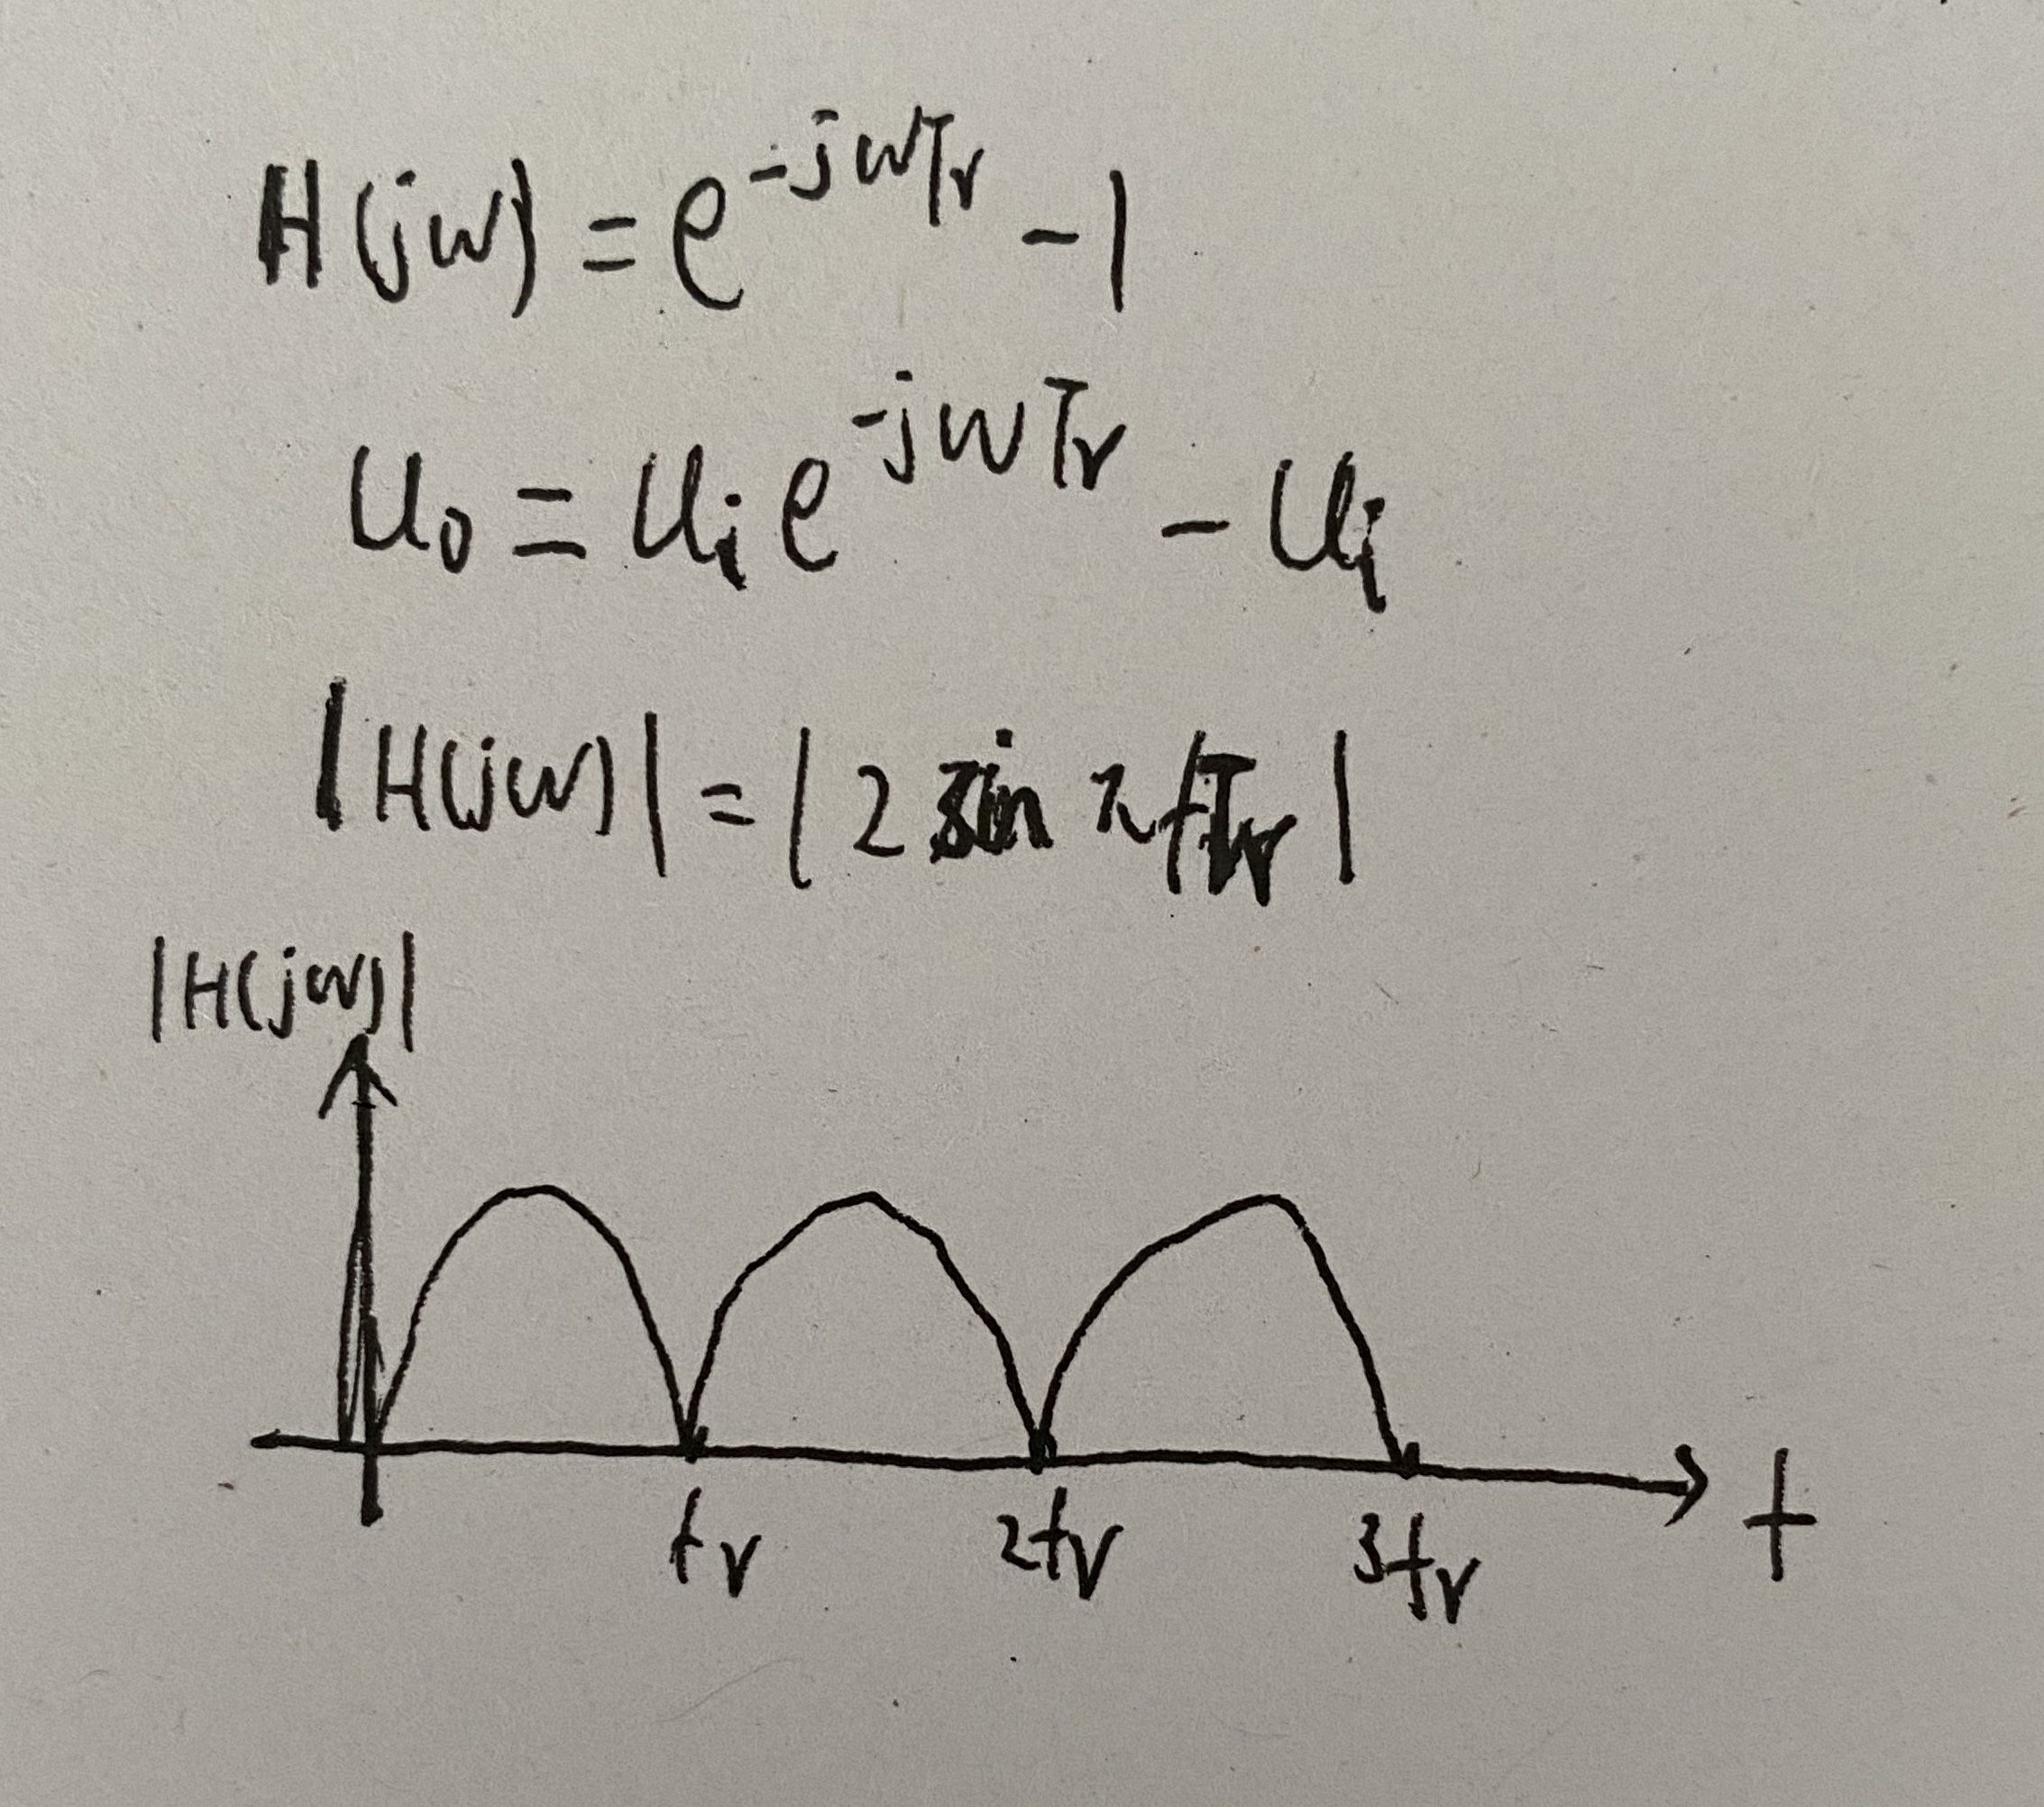 H(jw) = e^{-jwTr} - 1
U₀ = Uᵢ e^{-jwTr} - Uᵢ
|H(jw)| = |2 sin πfTr|
|H(jw)|
fr 2fr 3fr f